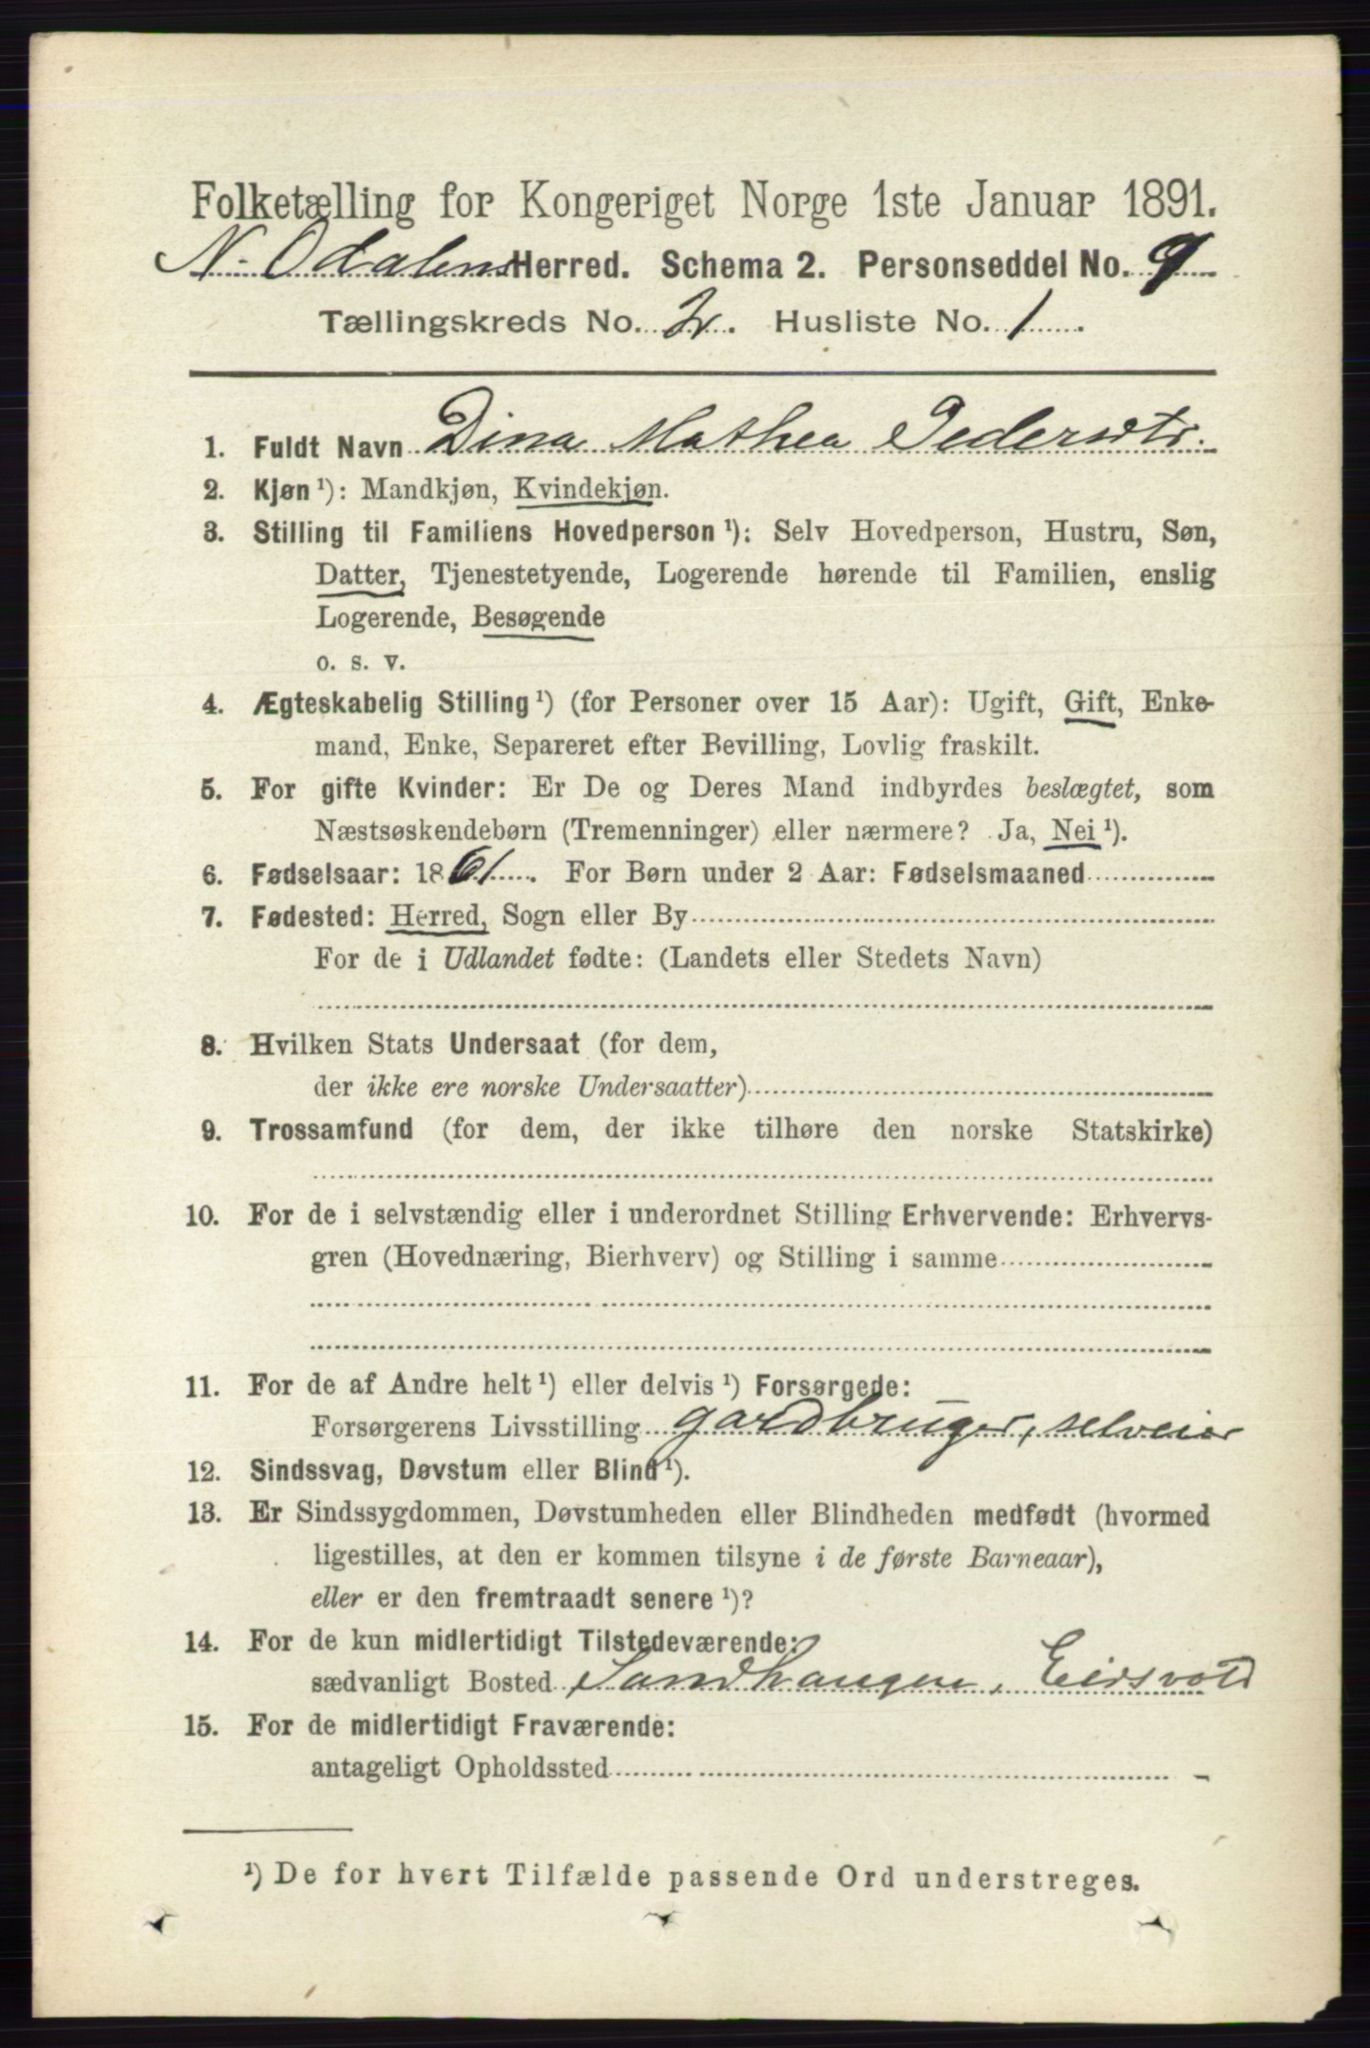 Folketælling for Kongeriget Norge 1ste Januar 1891.
N. Odalens Herred. Schema 2. Personseddel No. 9
Tællingskreds No. 2. Husliste No. 1.
1. Fuldt Navn Dina Mathea Pedersdtr.
2. Kjøn ¹): Mandkjøn, Kvindekjøn.
3. Stilling til Familiens Hovedperson ¹): Selv Hovedperson, Hustru, Søn,
Datter, Tjenestetyende, Logerende hørende til Familien, enslig
Logerende, Besøgende
o. s. v.
4. Ægteskabelig Stilling ¹) (for Personer over 15 Aar): Ugift, Gift, Enke-
mand, Enke, Separeret efter Bevilling, Lovlig fraskilt.
5. For gifte Kvinder: Er De og Deres Mand indbyrdes beslægtet, som
Næstsøskendebørn (Tremenninger) eller nærmere? Ja, Nei ¹).
6. Fødselsaar: 1861. For Børn under 2 Aar: Fødselsmaaned
7. Fødested: Herred, Sogn eller By
For de i Udlandet fødte: (Landets eller Stedets Navn)
8. Hvilken Stats Undersaat (for dem,
der ikke ere norske Undersaatter)
9. Trossamfund (for dem, der ikke tilhøre den norske Statskirke)
10. For de i selvstændig eller i underordnet Stilling Erhvervende: Erhvervs-
gren (Hovednæring, Bierhverv) og Stilling i samme
11. For de af Andre helt ¹) eller delvis ¹) Forsørgede:
Forsørgerens Livsstilling gardbruger, selveier
12. Sindssvag, Døvstum eller Blind ¹).
13. Er Sindssygdommen, Døvstumheden eller Blindheden medfødt (hvormed
ligestilles, at den er kommen tilsyne i de første Barneaar),
eller er den fremtraadt senere ¹)?
14. For de kun midlertidigt Tilstedeværende:
sædvanligt Bosted Sandhaugen, Eidsvold
15. For de midlertidigt Fraværende:
antageligt Opholdssted
¹) De for hvert Tilfælde passende Ord understreges.